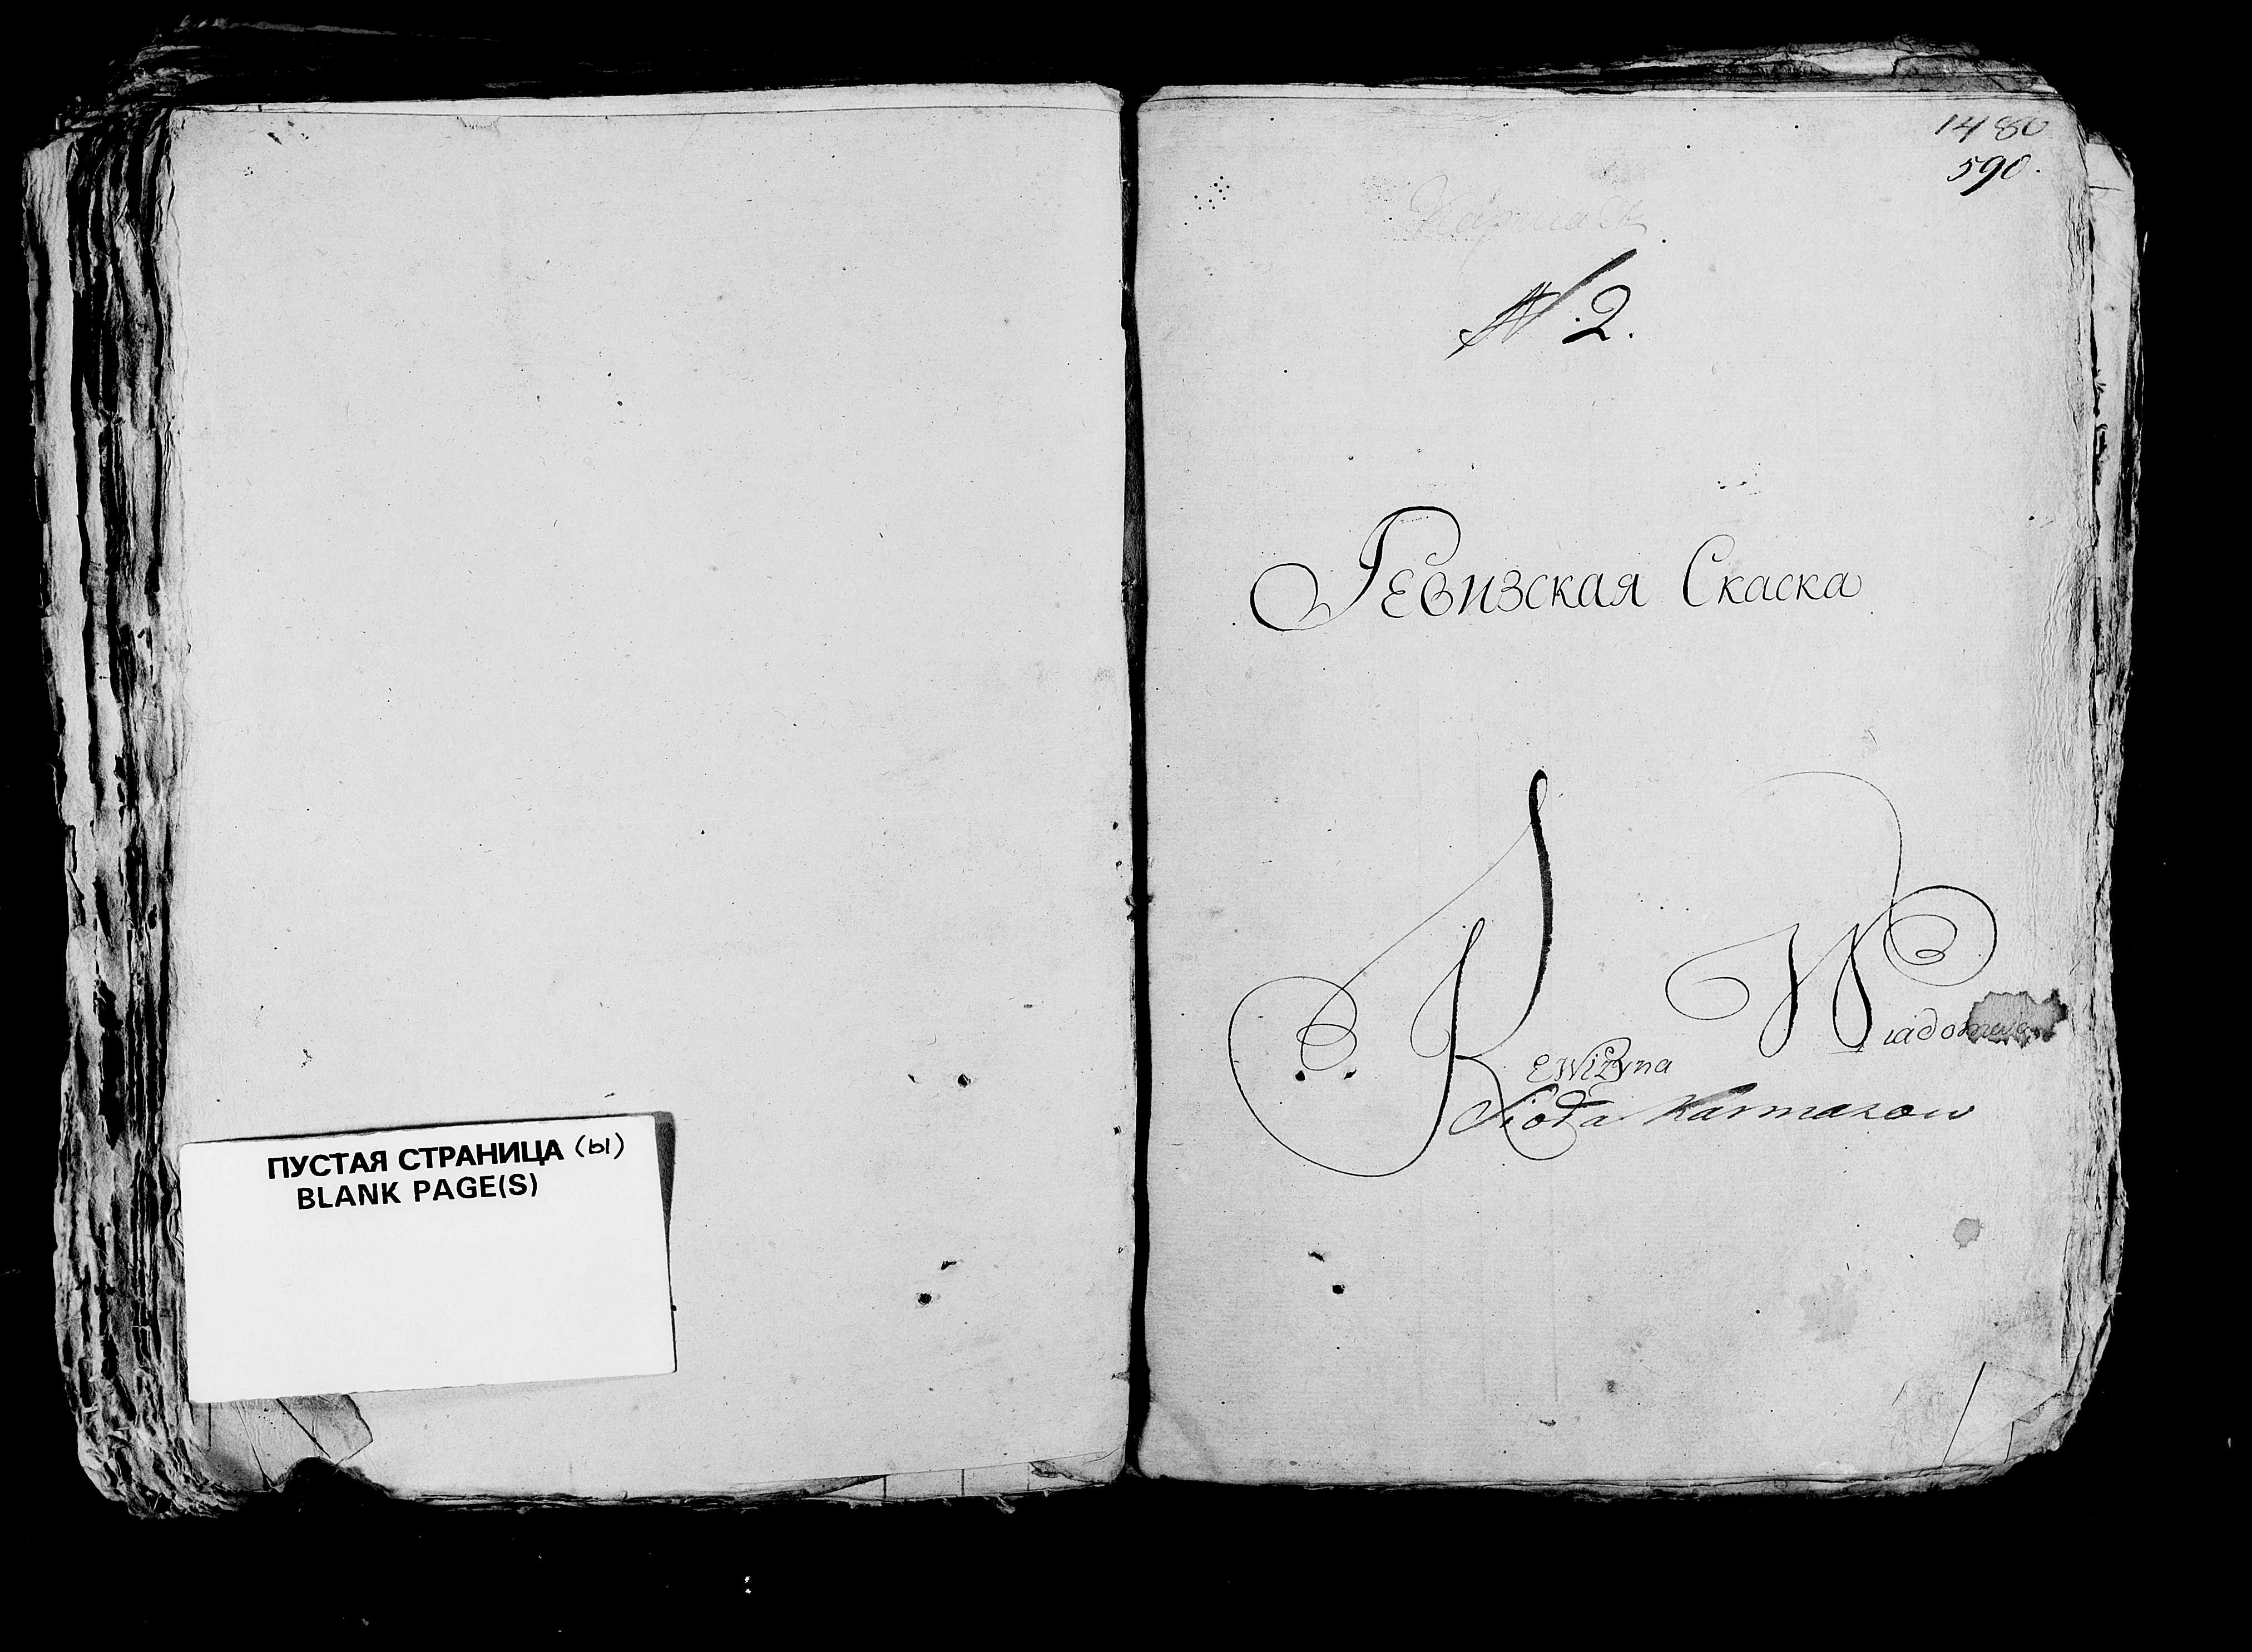 ПУСТАЯ СТРАНИЦА (ы)
BLANK PAGE(S)
1480
590.
N. 2.
Ревизская Скаска
Rewizyna Wiadomość
Sioła Karmazow